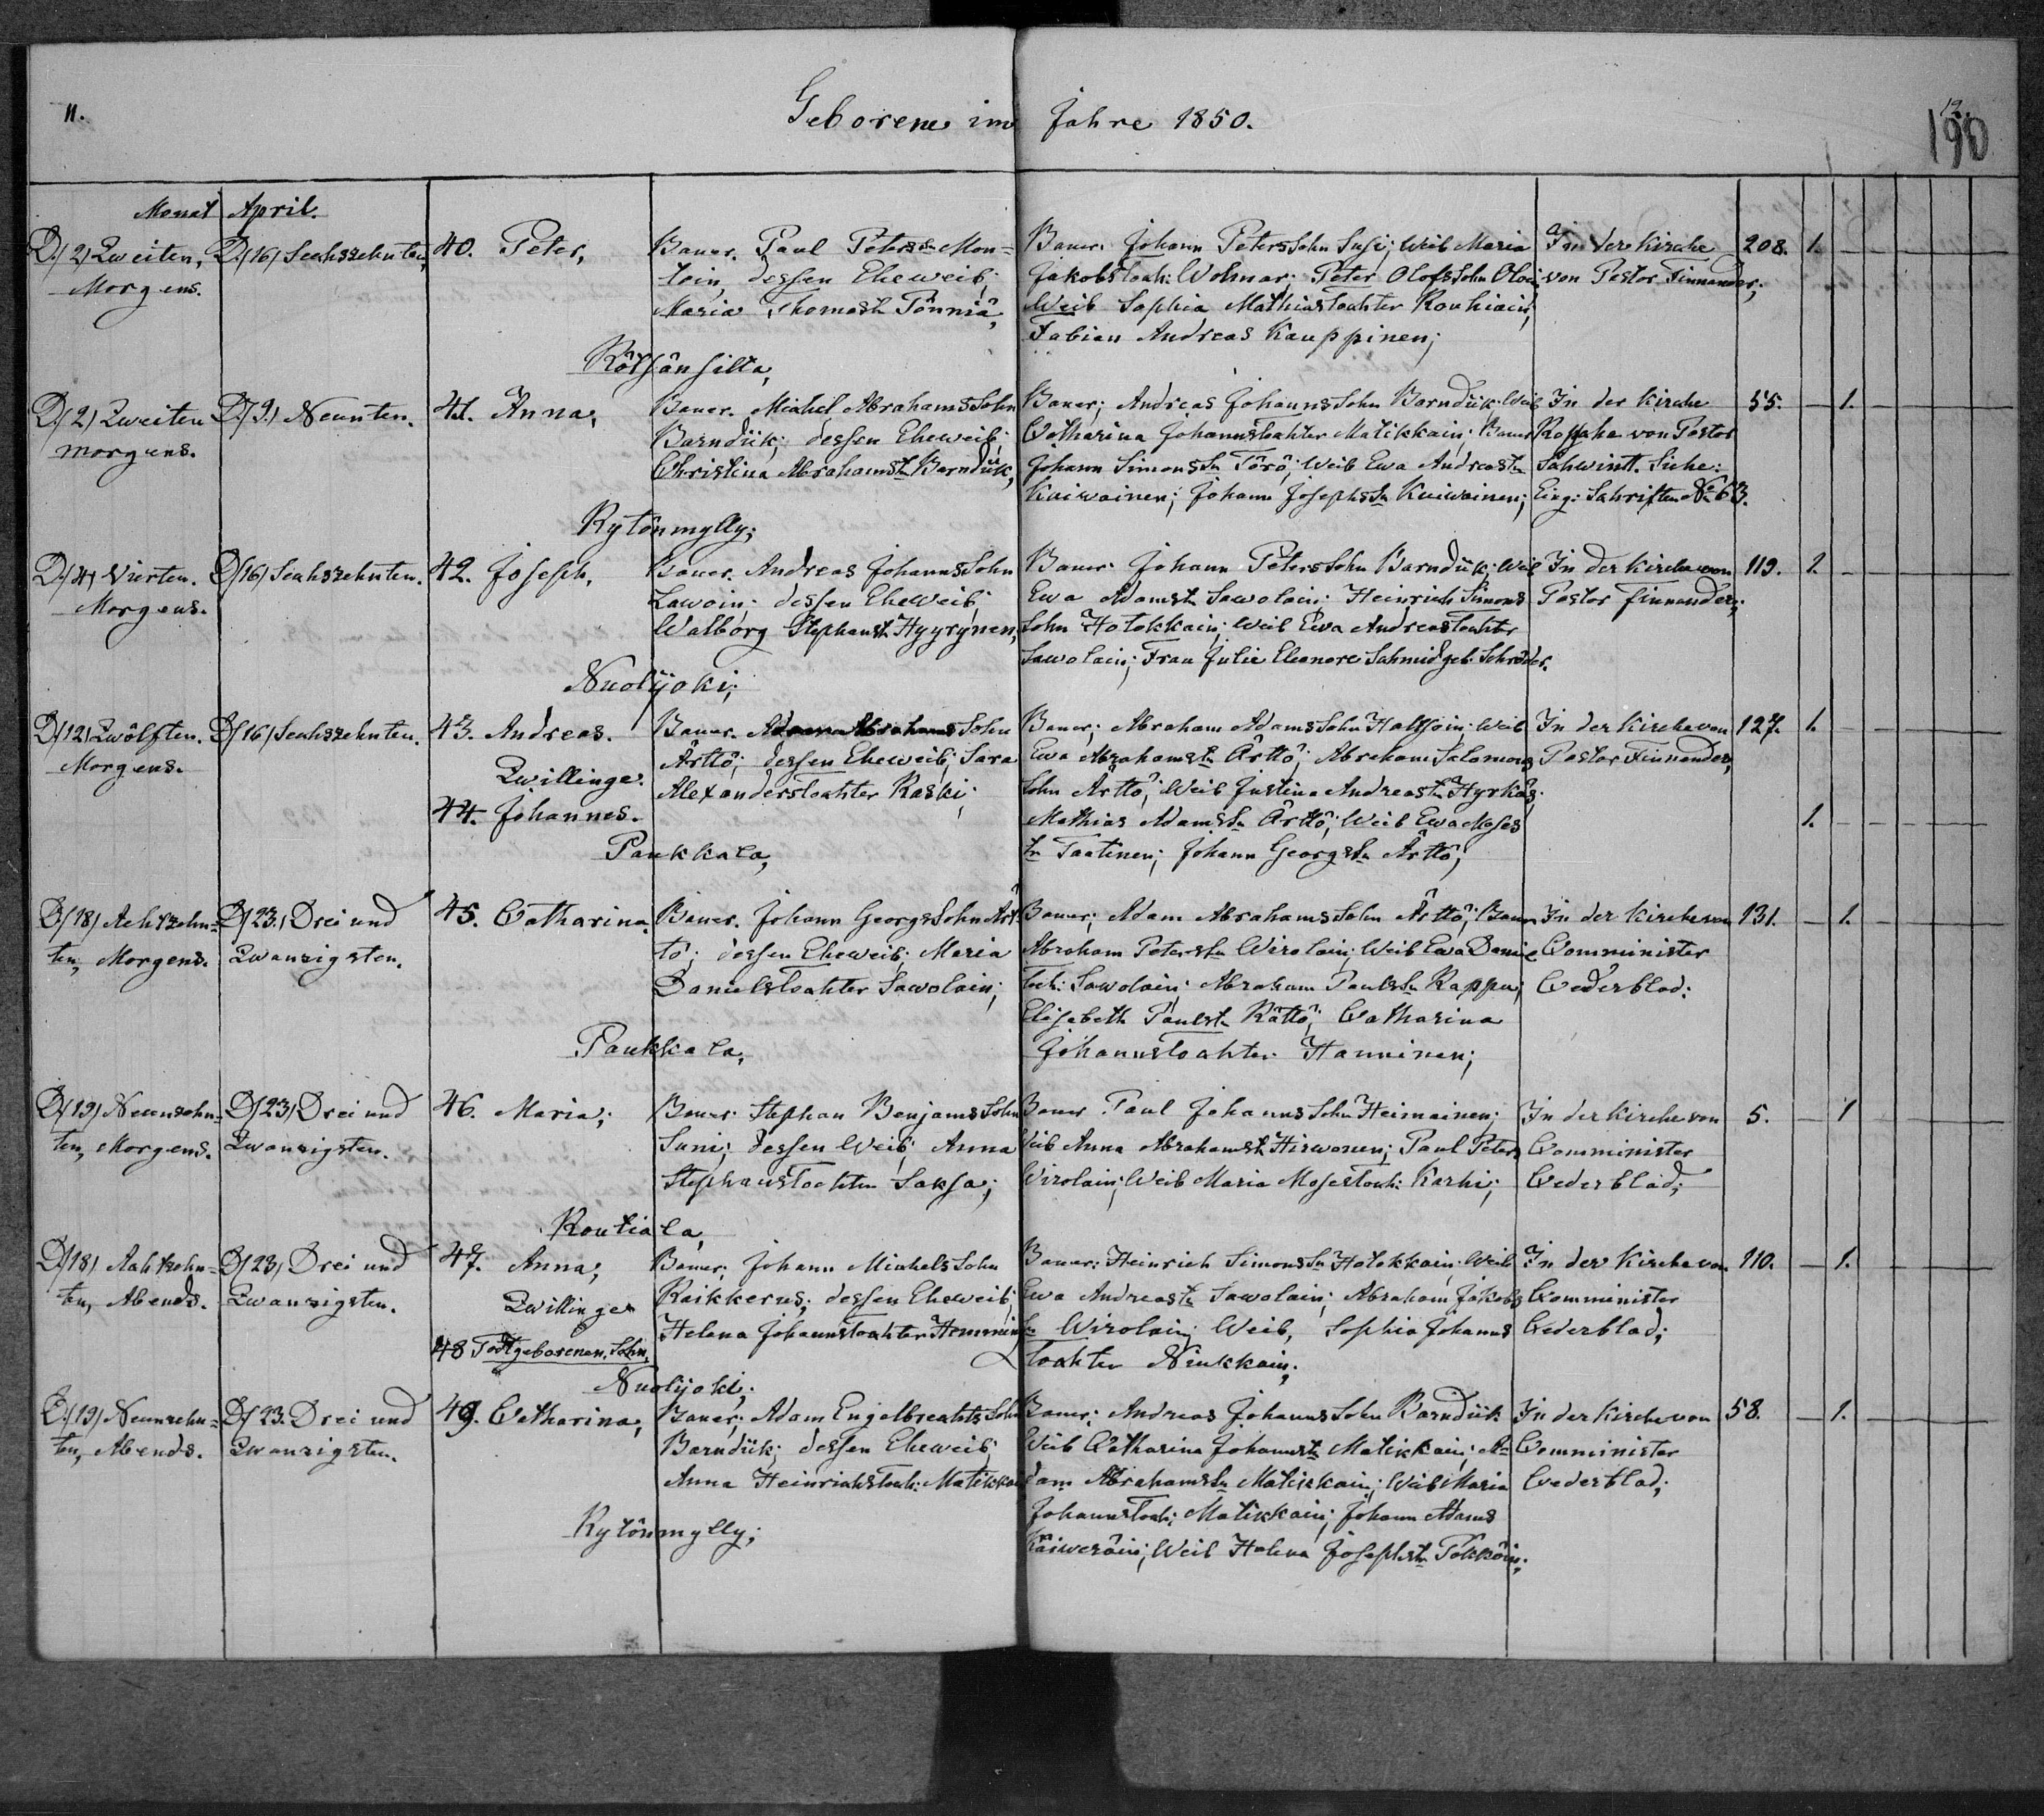 11.
Geborene im Jahre 1850.
12.
190
Monat April.
D./2/ Zweiten, Morgens.
D./16/ Sechszehnten,
40. Peter,
Bauer. Paul Peterssn Mon-
toin, dessen Eheweib;
Maria Thomastr Tönniä,
Rötsänsilta,
Bauer. Johann PetersSohn Susi; Weib Maria
Jakobstoch: Wolmar; Peter OlofsSohn
Weib Sophia Mathiastochter Rouhiain;
Fabian Andreas Kauppinen;
In der Kirche
von Pastor Finnander;
208. 1.
D./2/ Zweiten
morgens.
D./9./ Neunten.
41. Anna,
Bauer. Michel AbrahamsSohn
Barndük; dessen Eheweib;
Christina Abrahamstr Barndük,
Rytönmylly;
Bauer; Andreas JohannsSohn Barndük Weib
Catharina Johannstochter Matikkain; Bauer
Johann Simonssn Törö; Weib Ewa Andreastr
Kaiwainen; Johann Josephssn Kaiwainen;
In der Kirche
von Pastor
Schwintt. Siehe:
Eing: Schriften No 63.
55. 1.
D./4/ Vierten.
Morgens.
D/16/ Sechszehnten.
42. Joseph,
Bauer. Andreas JohannsSohn
Lawoin; dessen Eheweib;
Walborg Stephanstr Hyyrynen,
Nuolijoki;
Bauer. Johann PetersSohn Barndük; Weib
Ewa Adamstr Sawolain; Heinrich Simons
Sohn Hotokkain; Weib Ewa Andreastochter
Sawolain; Frau Julie Eleonore Schmid geb. Schröder.
In der Kirche von
Pastor Finnander;
119. 1.
D/12/ Zwölften.
Morgens.
D/16/ Sechszehnten.
43. Andreas.
Zwillinge.
44. Johannes.
Bauer. Adam Abrahams Sohn
Ärttö; dessen Eheweib; Sara
Alexanderstochter Raski;
Paukkala,
Bauer; Abraham AdamsSohn Halffoin; Weib
Ewa Abrahamstr Ärttö; Abraham Salomons
Sohn Ärttö; Weib Justina Andreastr Hyrkäs;
Mathias Adamssn Ärttö; Weib Ewa Moses
tr Taatinen; Johann Georgssn Ärttö;
In der Kirche von
Pastor Finnander,
127. 1.
1.
D/18/ Achtzehn-
ten, Morgens.
D/23./ Drei und
Zwanzigsten.
45. Catharina.
Bauer. Johann GeorgsSohn Ärt-
tö; dessen Eheweib; Maria
Danielstochter Sawolain;
Paukkala,
Bauer; Adam AbrahamsSohn Ärttö; Bauer
Abraham Peterssn Wirolain; Weib Ewa Daniel
Toch: Sawolain; Abraham Paulssn Kappu;
Elisabeth Paulstr Rättö; Catharina
Johannstochter Hanninen;
In der Kirche von
Comminister
Cederblad:
131. 1.
D/19/ Neunzehn-
ten, Morgens.
D/23/ Drei und
Zwanzigsten.
46. Maria;
Bauer. Stephan BenjamsSohn
Suni; dessen Weib; Anna
Stephanstochter Saksa;
Routiala,
Bauer Paul JohannsSohn Heimainen;
Weib Anna Abrahamstr Hirwonen; Paul Peters
Wirolain; Weib Maria Mosestoch: Karhi;
In der Kirche von
Comminister
Cederblad;
5. 1
D/18/ Achtzehn-
ten, Abends.
D/23/ Drei und
Zwanzigsten.
47. Anna;
Zwillinge
48 Todtgeborenen Sohn,
Bauer; Johann MichelsSohn
Raikkerus; dessen Eheweib;
Helena Johannstochter Hemmin
Nuolijoki;
Bauer: Heinrich Simonssn Hotokkain; Weib
Ewa Andreastr Sawolain; Abraham Jakobs
sn Wirolain; Weib, Sophia Johanns
tochter Niukkain;
In der Kirche von
Comminister
Cederblad;
110. 1.
D./19/ Neunzehn-
ten, Abends.
D/23. Drei und
Zwanzigsten.
49. Catharina,
Bauer; Adam EngelbrechtsSohn
Barndük; dessen Eheweib;
Anna Heinrichstoch: Matikkai
Rytönmylly;
Bauer; Andreas JohannsSohn Barndük
Weib Catharina Johannstr Matikkain; A-
dam Abrahamssn Matikkain; Weib Maria
Johannstoch; Matikkain; Johann Adams
Käiweräin; Weib Helena Josephstr Tokkoin;
In der Kirche von
Comminister
Cederblad;
58. 1.